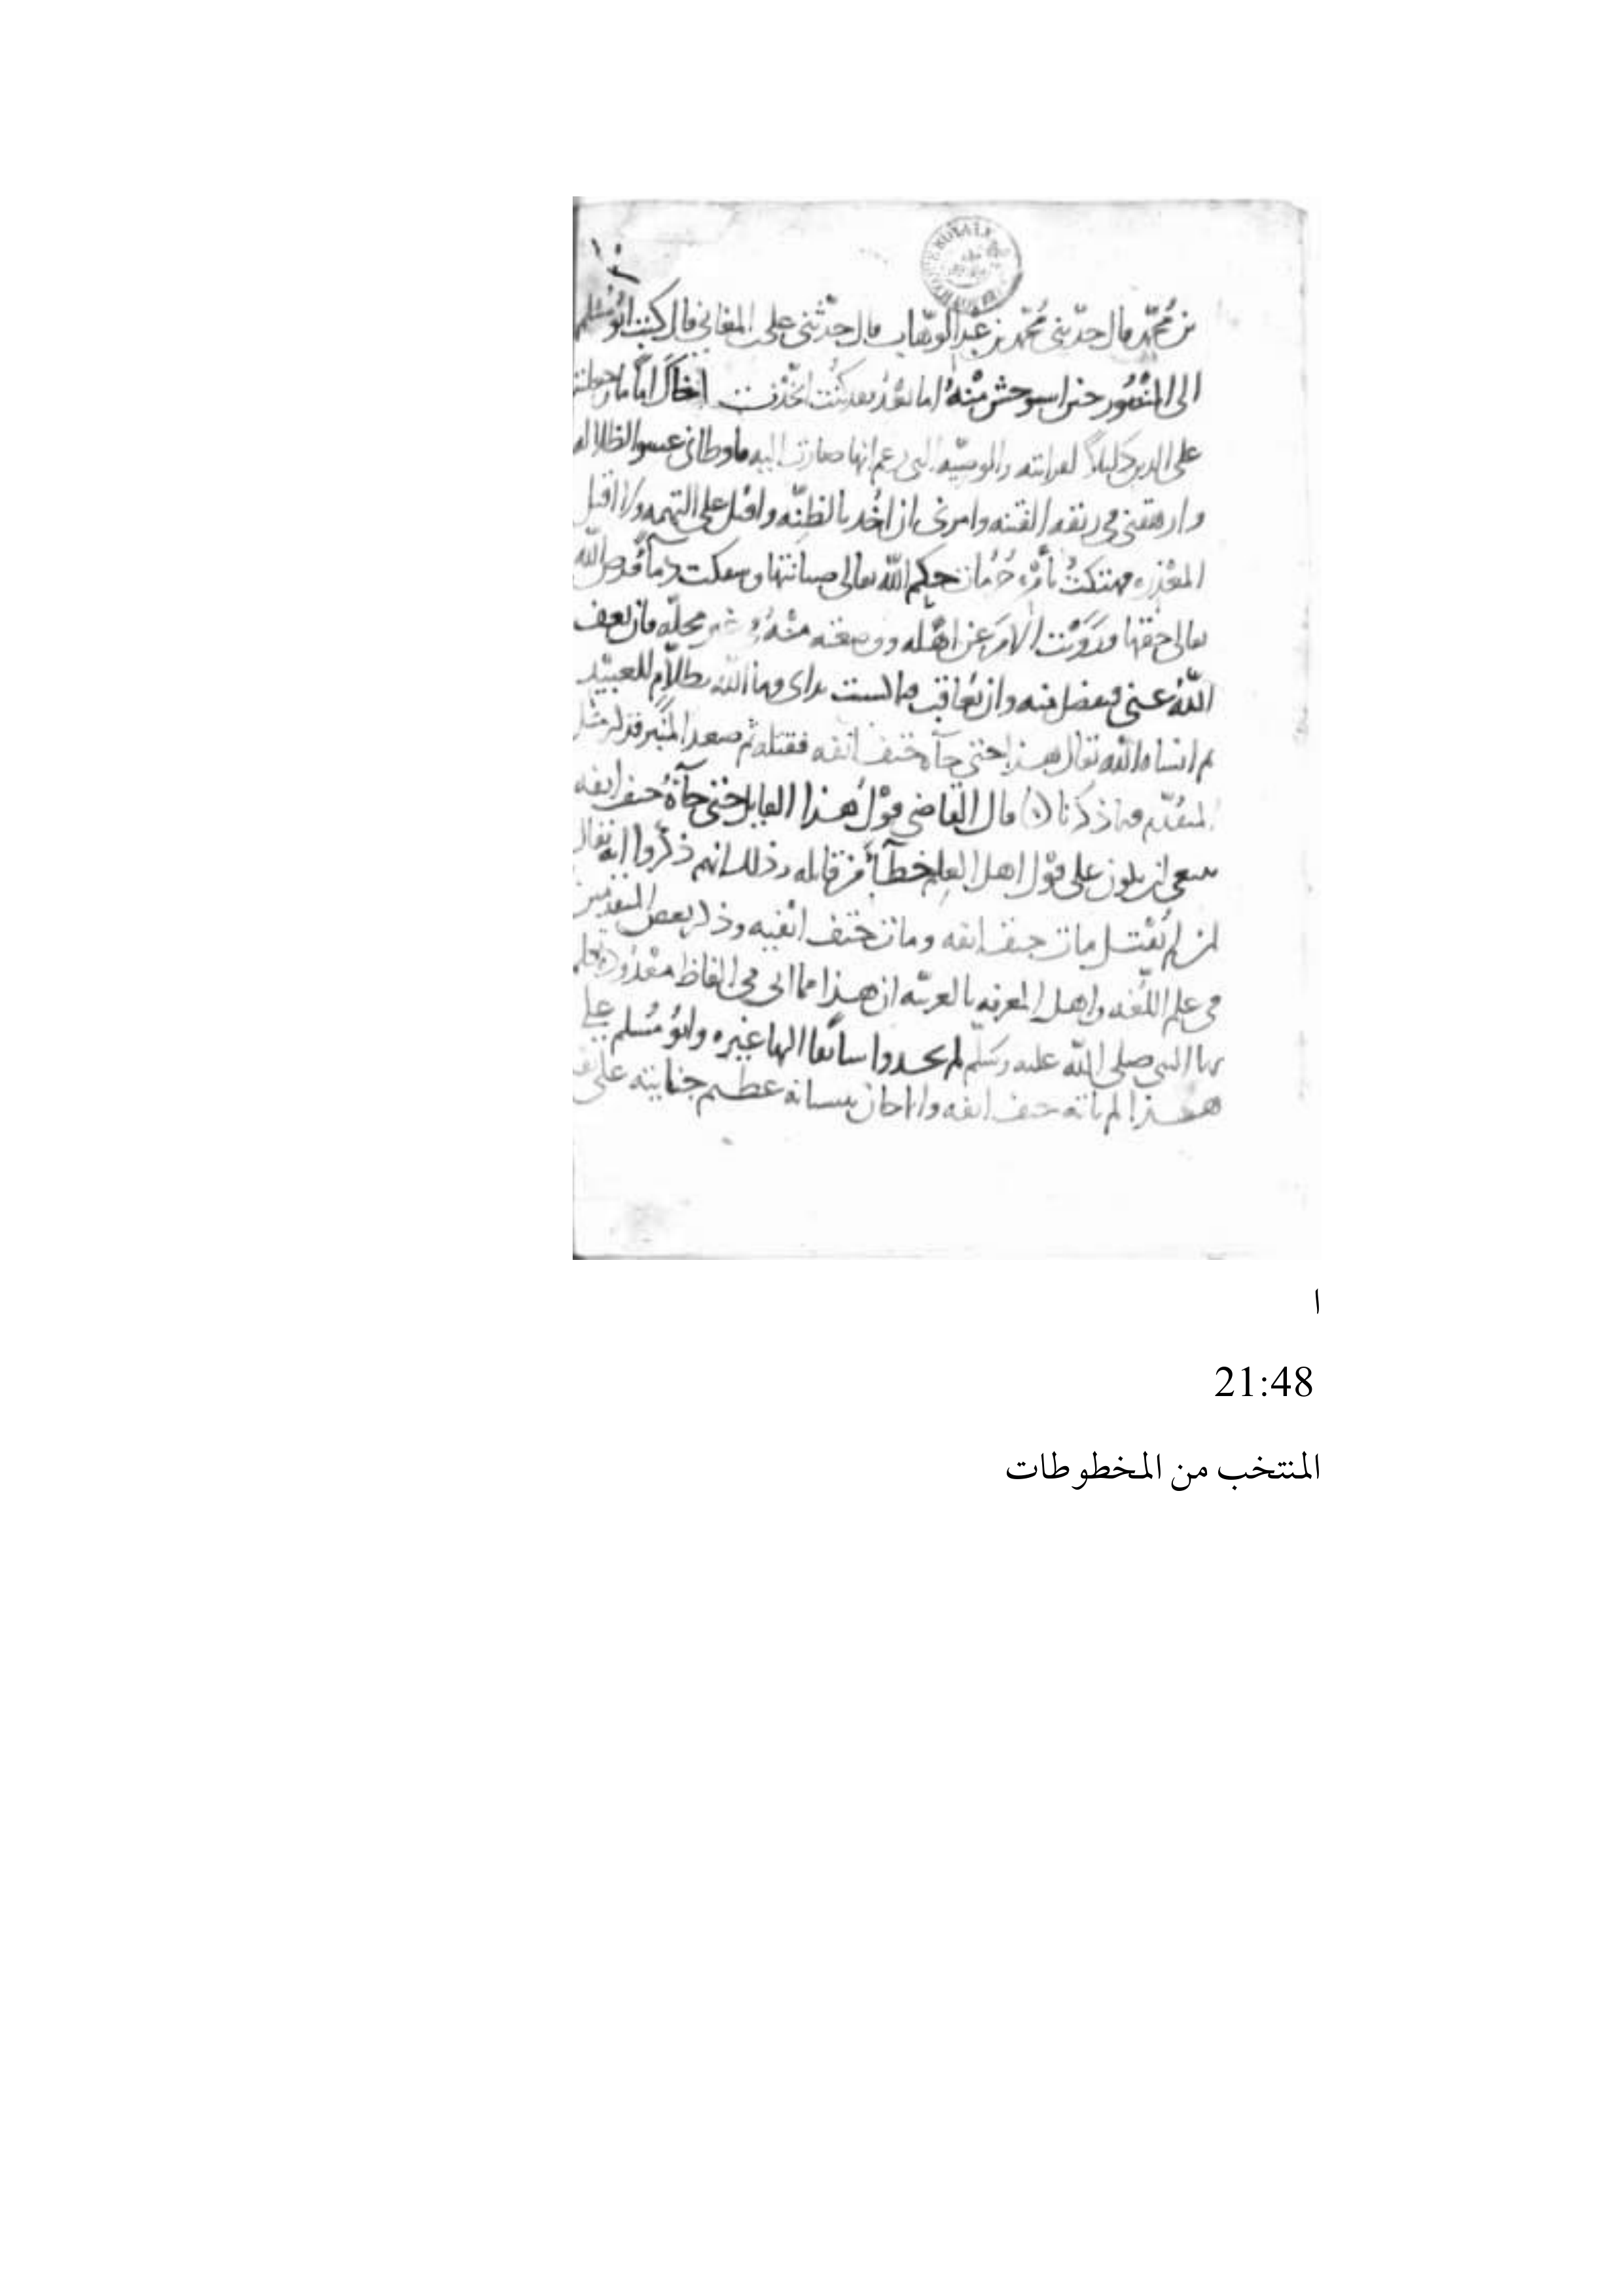 بن محمد قال حدثني محمد بن عبد الوهاب قال حدثني علي المعافي قال كتب ابو مسلم
الى المنصور حين استوحش منه اما بعد فقد كنت اتخذت اخاك اماما وجعلته
على الدين دليلا لقرابته والوصيه التي زعم انها صارت اليه فاوطاني عشوا الظلاله
وارهقني في ربقه الفتنه وامرني ان اخذ بالظنه واقتل على التهمه ولا اقبل
المعذره فهتكت بأمره حرمات حكم الله تعالى صيانتها وسفكت دما فرض الله
تعالى حقنها وزويت الامر عن اهله ووضعته منه في غير محله فان يعف
الله عني فبفضل منه وان يعاقب فبما كسبت يداي وما الله بظلام للعبيد
ثم انساه الله تعال هذا حتى جآه حتف انفه فقتله ثم صعد المنبر فذكر مثل
المتقدم فيما ذكرنا قال القاضي قول هذا القايل حتى جآه حتف انفه
ينبغي ان يكون على قول اهل العلم خطآ من قايله وذلك انهم ذكروا انه يقال
لمن لم يقتل مات حتف انفه ومات حتف انفيه وذكر بعض المتقدمين
في علم اللغه واهل المعرفه بالعربيه ان هذا مما اتى في الفاظ معدوده تكلم
بها النبي صلى الله عليه وسلم لم يجدوا سابقا اليها غيره وابو مسلم على
هذا لم ياته حتف انفه وانما حان بسيانه عظيم جنايته على
ا
21:48
المنتخب من المخطوطات